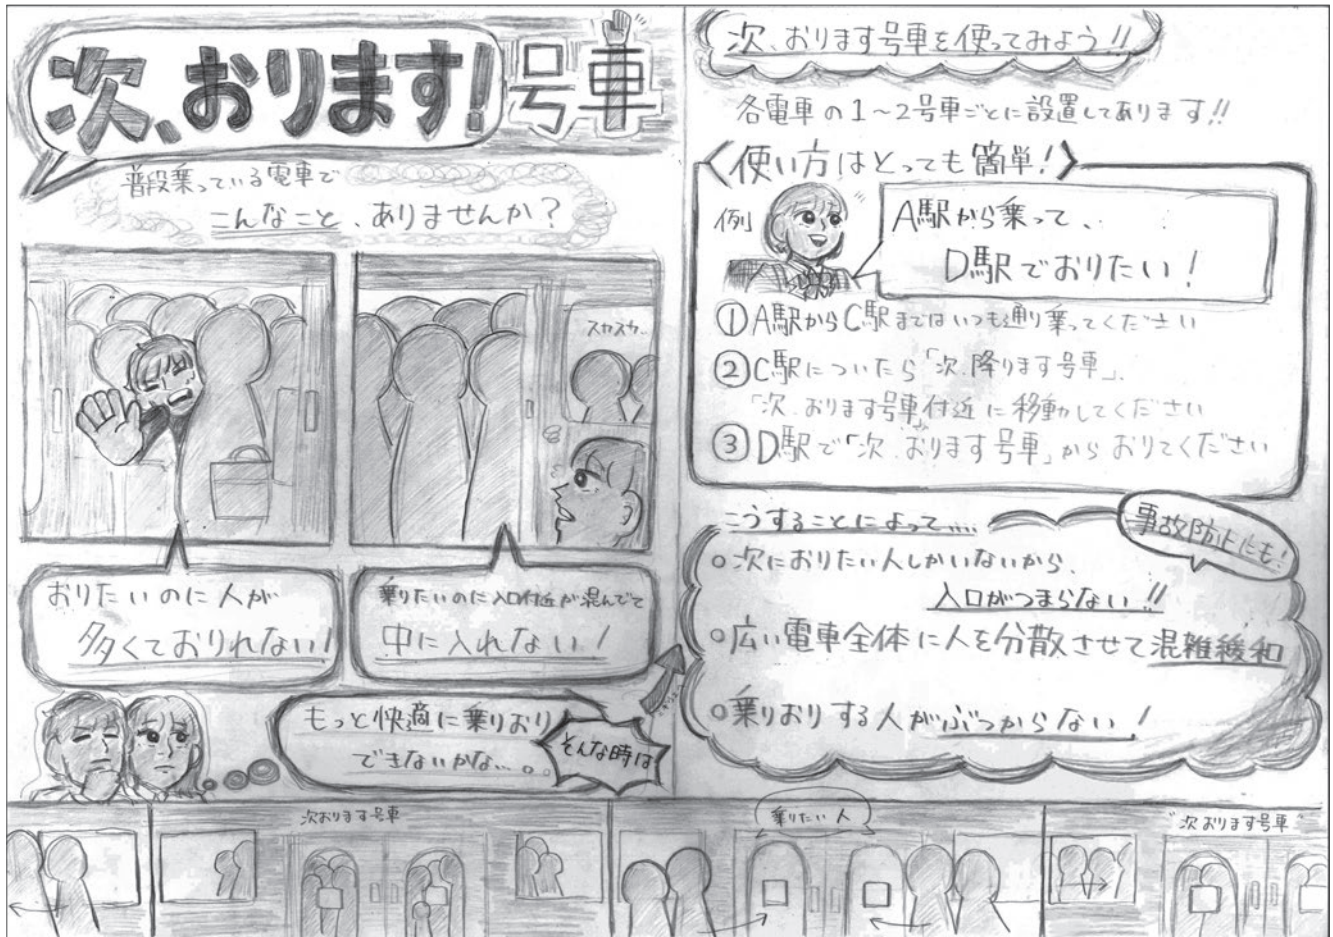 次、おります!号車
普段乗っている電車で
こんなこと、ありませんか?
スカスカ…
おりたいのに人が
多くておりれない!
乗りたいのに入口付近が混んでて
中に入れない!
もっと快適に乗りおり
できないかな…。。
そんな時は
次、おります号車を使ってみよう!!
各電車の1〜2号車ごとに設置してあります!!
使い方はとっても簡単!
例
A駅から乗って、
D駅でおりたい!
①A駅からC駅まではいつも通り乗ってください
②C駅についたら「次.降ります号車」、
「次.おります号車」付近に移動してください
③D駅で「次.おります号車」からおりてください
こうすることによって……
事故防止にも!
○次におりたい人しかいないから、
入口がつまらない!!
○広い電車全体に人を分散させて混雑緩和
○乗りおりする人がぶつからない!
次おります号車
乗りたい人
"次おります号車"